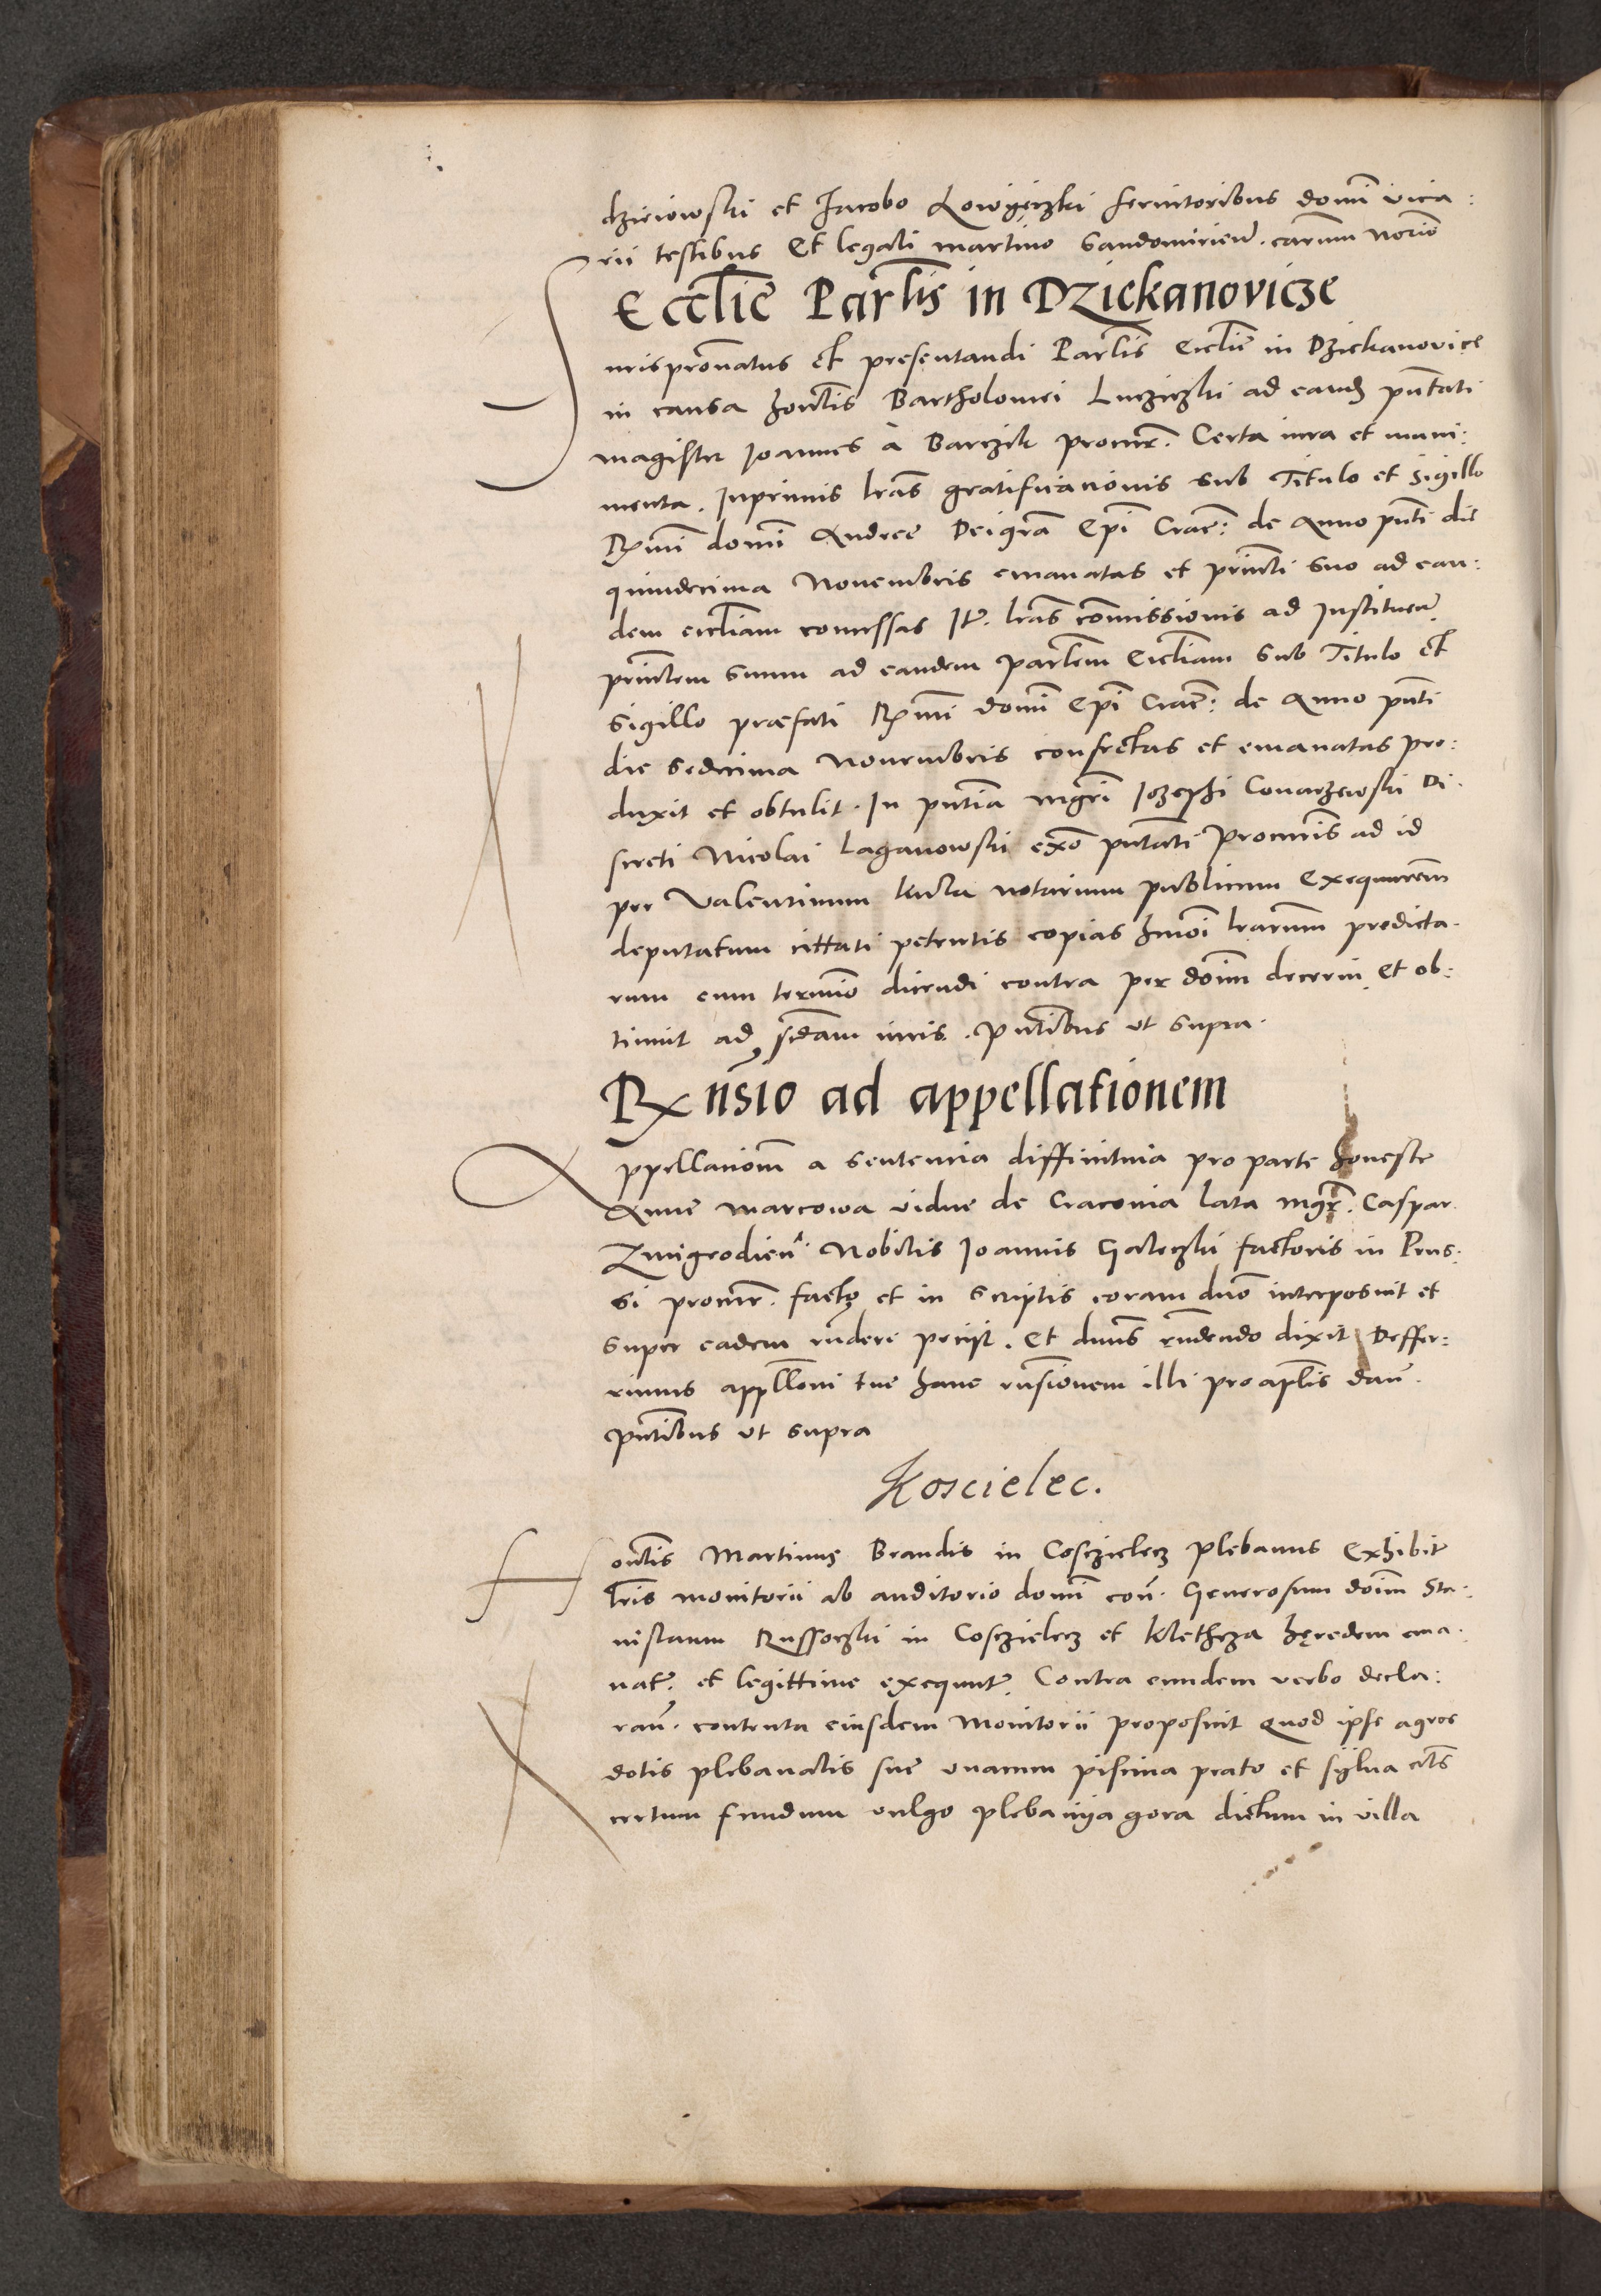 dzieiowski et Jacobo Lowięczki seruitoribus domi vica:
rii testibus Et legali martino Sandomirien. carum Norio
Ecclie Parlis in Dziekanovicze
Jurispronatus et presentandi Parlis Ecclie in Dziekanovice
in causa honlis Bartholomei ad eand pntati
magister Joannes a Barczik procur. Certa iura et muni:
menta. Inprimis lras gratificationis sub Titulo et Sigillo
Rmi domi Andree Dei gra Epi Crac: de Anno pnti die
quindecima Nouembris emanatas et princti suo ad ean:
dem eccliam concessas It. lras comissionis ad Instituen
princtem suum ad eandem parlem Eccliam sub Titulo et
sigillo præfati Rmi domi Epi Crac: de Anno pnti
die sedecima Nouembris confectas et emanatas pro:
duxit et obtulit. In pntia mgri Jozephi Conarzewski Di
screti Nicolai Laganowski exo pntati Procuris ad id
per Valentinum Kula notarium publicum Exequutem
deputatum cittati petentis copias hmoi lrarum predicta.
rum cum termio dicendi contra per doim decerni et ob:
tinuit ad scdam iuris. Pntibus ut supra.
Rx nsio ad appellationem
Appellationem a sententia diffinitiua pro parte honeste
Anne Marcowa vidue de Cracouia lata mgr. Caspar
Zmigrodien. Nobilis Joannis Galeczki factoris in Prus.
si procur. facto et in scriptis coram dno interposuit et
super eadem rndere petijt. Et dnus rndendo dixit Deffer:
rimus applloni tue hanc rnsionem illi pro aplis dan.
Pntibus ut supra
Koscielec.
Honlis Martinus Brandis in Cosczielecz plebanus Exhibit
lris monitorii ab auditorio domi con. Generosum doim Sta
nislaum Russoczki in Cosczielecz et Kletheza hęredem ema.
nat. et legittime exequut. Contra eundem verbo decla:
ran. contenta eiusdem Monitorii proposuit Quod ipse agros
dotis plebanalis sue unacum piscina prato et sylua
certum fundum vulgo plebanija gora dictum in villa